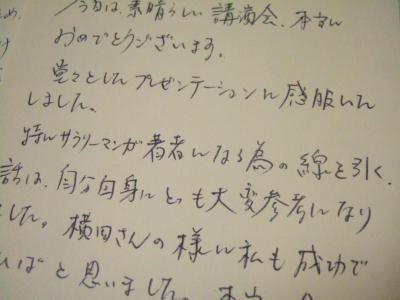 今回は、素晴らしい講演会、本当に
おめでとうございます。
堂々としたプレゼンテーションに感服いたし
しました。
特にサラリーマンが著者になる為の線を引く、
話は、自分自身にとっても大変参考になり
した。横田さんの様に私も成功で
ればと思いました。本当